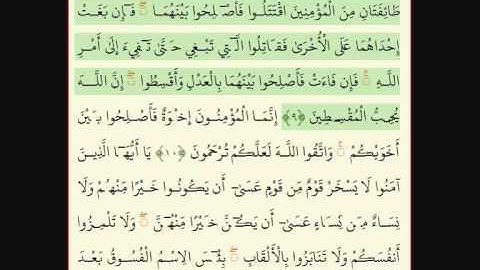 طَائِفَتَانِ مِنَ الْمُؤْمِنِينَ اقْتَتَلُوا فَأَصْلِحُوا بَيْنَهُمَا ۖ فَإِن بَغَتْ
إِحْدَاهُمَا عَلَى الْأُخْرَىٰ فَقَاتِلُوا الَّتِي تَبْغِي حَتَّىٰ تَفِيءَ إِلَىٰ أَمْرِ
اللَّهِ ۚ فَإِن فَاءَتْ فَأَصْلِحُوا بَيْنَهُمَا بِالْعَدْلِ وَأَقْسِطُوا ۖ إِنَّ اللَّهَ
يُحِبُّ الْمُقْسِطِينَ ﴿٩﴾ إِنَّمَا الْمُؤْمِنُونَ إِخْوَةٌ فَأَصْلِحُوا بَيْنَ
أَخَوَيْكُمْ ۚ وَاتَّقُوا اللَّهَ لَعَلَّكُمْ تُرْحَمُونَ ﴿١٠﴾ يَا أَيُّهَا الَّذِينَ
آمَنُوا لَا يَسْخَرْ قَوْمٌ مِّن قَوْمٍ عَسَىٰ أَن يَكُونُوا خَيْرًا مِّنْهُمْ وَلَا
نِسَاءٌ مِّن نِّسَاءٍ عَسَىٰ أَن يَكُنَّ خَيْرًا مِّنْهُنَّ ۖ وَلَا تَلْمِزُوا
أَنفُسَكُمْ وَلَا تَنَابَزُوا بِالْأَلْقَابِ ۖ بِئْسَ الِاسْمُ الْفُسُوقُ بَعْدَ